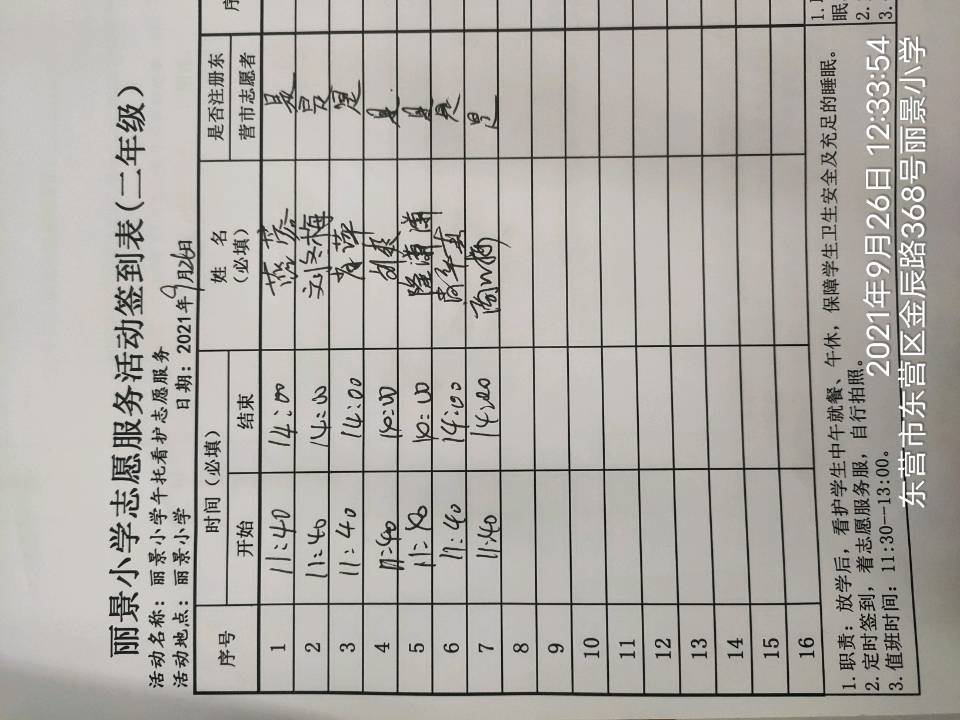 丽景小学志愿服务活动签到表(二年级)
活动名称：丽景小学午托看护志愿服务
活动地点：丽景小学 日期：2021年9月26日
序号 时间(必填) 姓名(必填) 是否注册东营市志愿者
开始 结束
1 11:40 14:00 是
2 11:40 14:00 刘冬梅 是
3 11:40 14:00 是
4 11:40 14:00 是
5 11:40 14:00 是
6 11:40 14:00 是
7 11:40 14:00 是
8
9
10
11
12
13
14
15
16
1. 职责：放学后，看护学生中午就餐、午休，保障学生卫生安全及充足的睡眠。
2. 定时签到，着志愿服务服，自行拍照。
3. 值班时间：11:30--13:00。
序
1.
眠
2.
3.
2021年9月26日 12:33:54
东营市东营区金辰路368号丽景小学